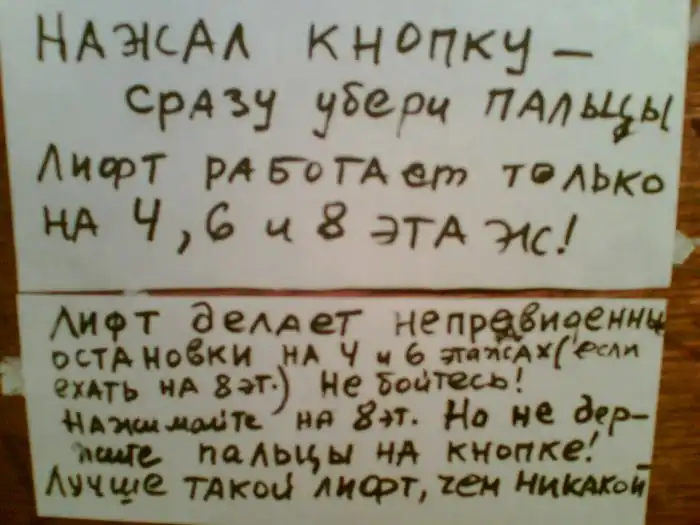 НАЖАЛ КНОПКУ –
сразу убери ПАЛЬЦЫ
Лифт работает только
на 4, 6 и 8 этаж!
Лифт делает непредвиденны
остановки на 4 и 6 этажах (если
ехать на 8 эт.) Не бойтесь!
Нажимайте на 8 эт. Но не дер-
жите пальцы на кнопке!
Лучше такой лифт, чем никакой